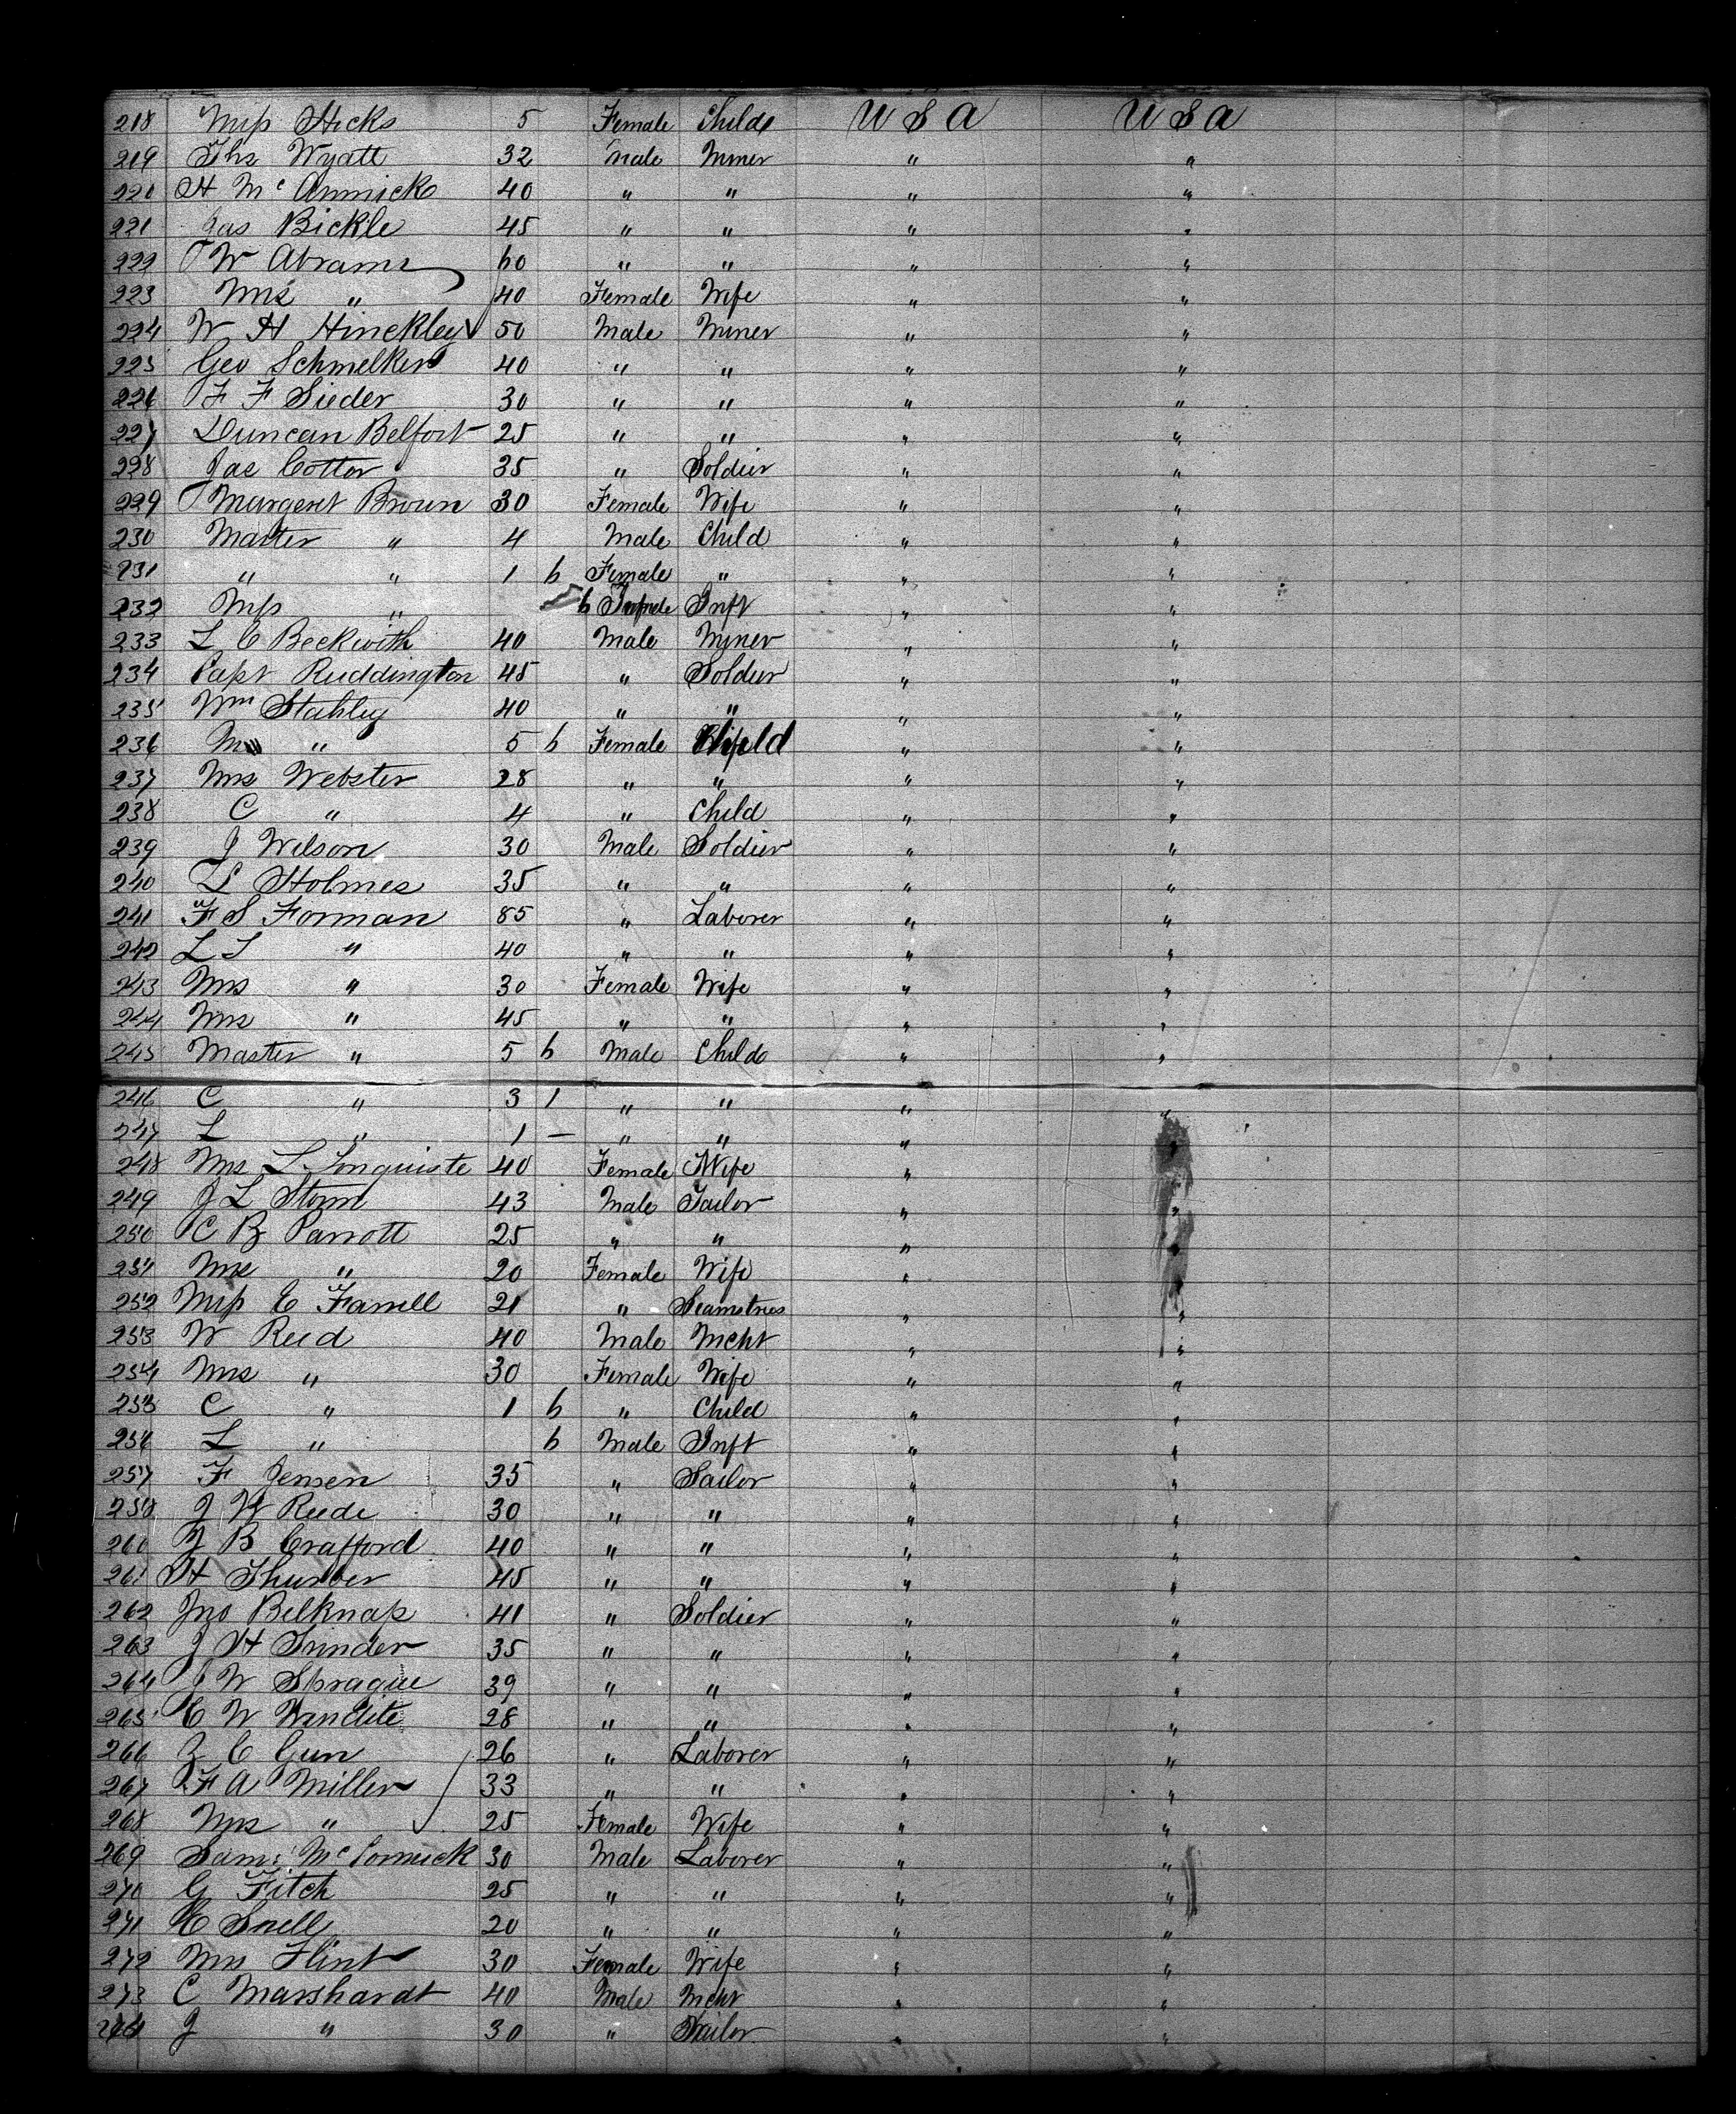 218 Miss Hicks 5 Female Child U S A U S A
219 Ths Wyatt 32 Male Miner " "
220 H Mc Annick 40 " " " "
221 Jas Bickle 45 " " " "
222 W Abrams 60 " " " "
223 Mrs " 40 Female Wife " "
224 W H Hinckley 50 Male Miner " "
225 Geo Schmelker 40 " " " "
226 F F Sieder 30 " " " "
227 Duncan Belfort 25 " " " "
228 Jas Cotter 35 " Soldier " "
229 Margeret Broun 30 Female Wife " "
230 Master " 4 Male Child " "
231 " " 1 6 Female " " "
232 Miss " 6 Inft " "
233 L C Beckwith 40 Male Miner " "
234 Capt Ruddington 45 " Soldier " "
235 Wm Stahley 40 " " " "
236 " 5 6 Female Child " "
237 Mrs Webster 28 " " " "
238 C " 4 " Child " "
239 J Wilson 30 Male Soldier " "
240 L Holmes 35 " " " "
241 F S Forman 85 " Laborer " "
242 L S " 40 " " " "
243 Mrs " 30 Female Wife " "
244 Mrs " 45 " " " "
245 Master " 5 6 Male Child " "
246 C " 3 1 " " " "
247 L " 1 — " " " "
248 Mrs L Linquiste 40 Female Wife " "
249 J L Storm 43 Male Tailor " "
250 C B Parrott 25 " " " "
251 Mrs " 20 Female Wife " "
252 Miss E Farrell 21 " Seamstres " "
253 W Reed 40 Male Mcht " "
254 Mrs " 30 Female Wife " "
255 C " 1 6 " Child " "
256 L " 6 Male Inft " "
257 F Jensen 35 " Sailor " "
258 J W Reede 30 " " " "
260 J B Crafford 40 " " " "
261 H Thurber 45 " " " "
262 Jno Belknap 41 " Soldier " "
263 J H Trinder 35 " " " "
264 J W Sprague 39 " " " "
265 E W 28 " " " "
266 Z C Gun 26 " Laborer " "
267 F A Miller 33 " " " "
268 Mrs " 25 Female Wife " "
269 Saml McCormick 30 Male Laborer " "
270 G Fitch 25 " " " "
271 E Snell 20 " " " "
272 Mrs Flint 30 Female Wife " "
273 C Marshardt 40 Male Mcht " "
274 J " 30 " Tailor " "